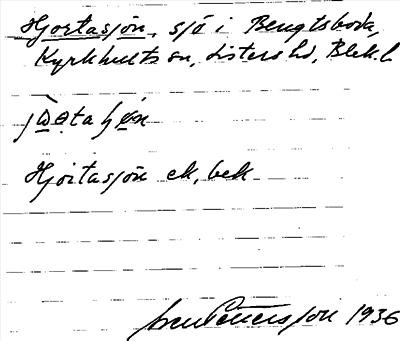 Hjortasjön, sjö i Bengtsboda,
Kyrkhults sn, Listers hd, Blek. l
Hjortasjön ek, bek
Sven Pettersson 1936